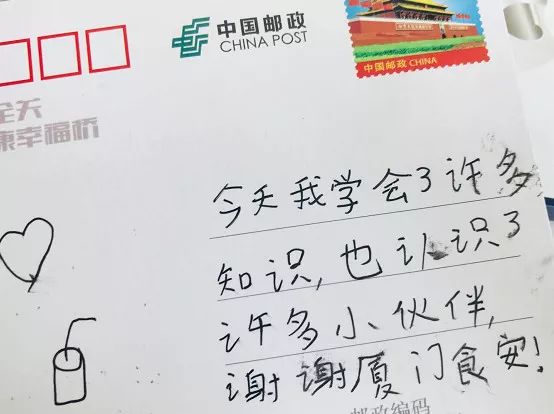 中国邮政
CHINA POST
中国邮政 CHINA
康幸福桥
今天我学会了许多
知识,也认识了
许多小伙伴,
谢谢厦门食安!
邮政编码